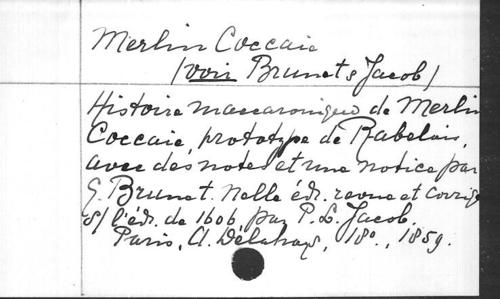 Merlin Coccaie
(voir Brunet & Jacob)
Histoire maccaronique de Merlin
Coccaie, prototype de Rabelais,
avec des notes et une notice par
G. Brunet. Nelle éd. revue et corrigé
s/ l'éd. de 1606 par P. L. Jacob.
Paris, A. Delahays, 18°, 1859.